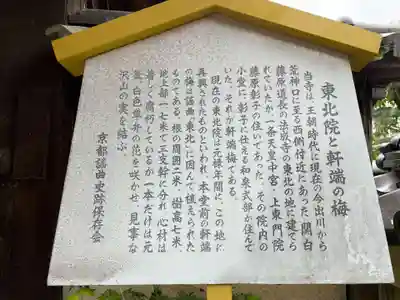 東北院と軒端の梅
当寺は、王朝時代に現在の今出川から
荒神口に至る西側付近にあった、関白
藤原道長の法成寺の東北の地に建てら
れていたが、一条天皇中宮、上東門院
藤原彰子の住いであった。その院内の
小堂に、彰子に仕える和泉式部が住んで
いた。それが軒端梅である。
現在の東北院は元禄年間に、この地に
再興されたものといわれ、本堂前の軒端
の梅は謡曲「東北」に因んで植えられた
ものである。根の周囲二米、樹高七米、
地上部一七米で三支幹に分れ、心材は
著しく腐朽しているが一本だけは元
気、白色単弁の花を咲かせ、見事な
沢山の実を結ぶ。
京都謡曲史跡保存会